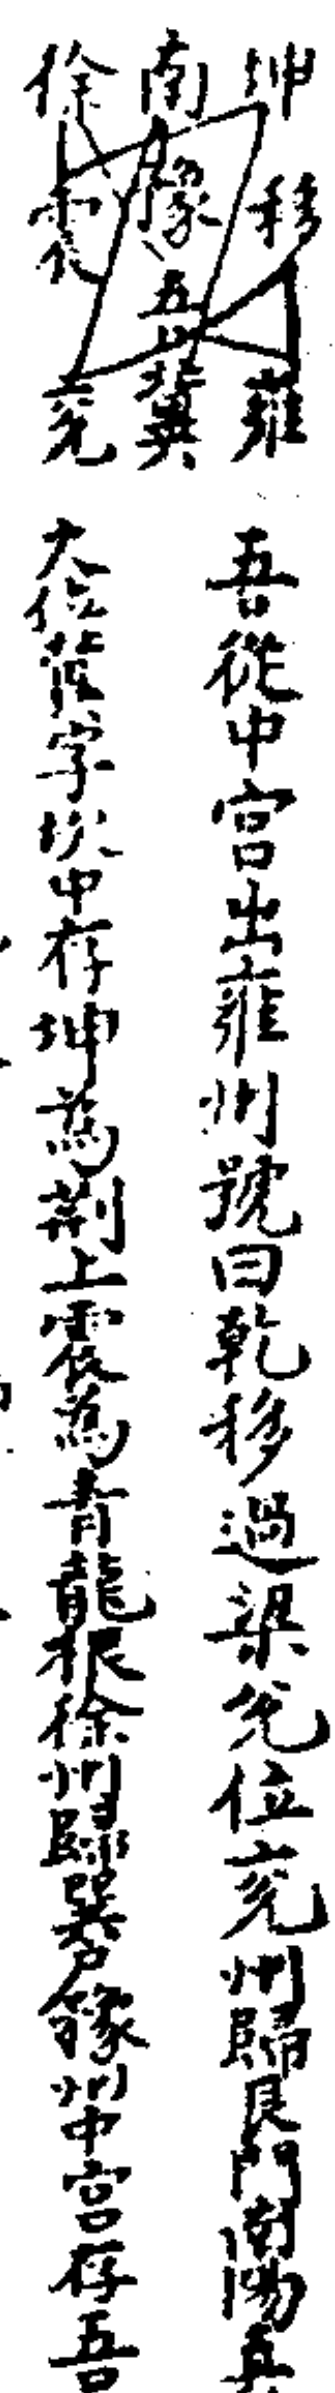 坤移雍
南豫吾冀
徐震兗
吾從中宮出雍州號曰乾移過梁兌位兗州歸艮門南陽真
大位字坎中存坤為荊上震為青龍根徐州歸巽戶豫州中宮存吾